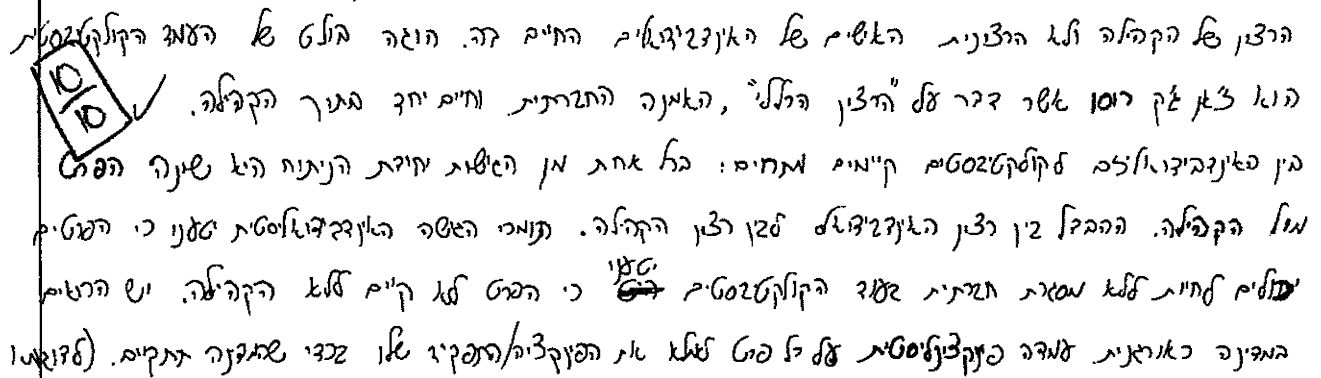 הרצון של הקהילה ולא הרצונית האישים של האינדבידואלים החיים בה. הוגה בולט של העמד הקולקטיבסטית
10/10
הוא ז'אן ז'ק רוסו אשר דבר על "הרצון הכללי", האמנה החברתית וחיים יחד בתוך הקהילה.
בין האינדבידואליזם לקולקטיבסטים קיימים מתחים: בכל אחת מן הגישות יחידת הניתוח היא שונה הפרט
מול הקהילה. ההבדל בין רצון האינדבידואל לבין רצון הקהילה. תומכי הגישה האינדבידואליסטית יטענו כי הפרטים
יכולים לחיות ללא מסגרת חברתית בעוד הקולקטבסטים יטענו כי הפרט לא קיים ללא הקהילה. יש הרואים
במדינה כאורגנית. עמדה פונקציונליסטית על כל פרט למלא את הפונקציה/התפקיד שלו בכדי שהמדנה תתקיים. (לדוגמתו